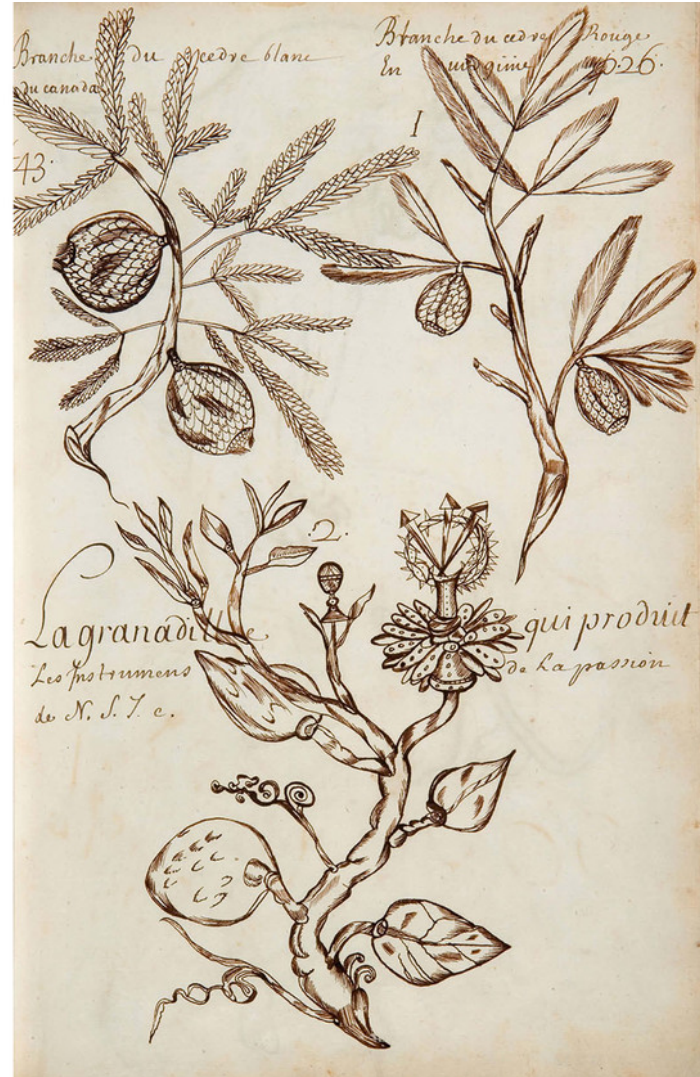 Branche du cedre blanc
du canada
43.
Branche du cedre Rouge
En virginie p. 26.
I
.2.
La granadille qui produit
Les Instrumens de La passion
de N. S. J. c.